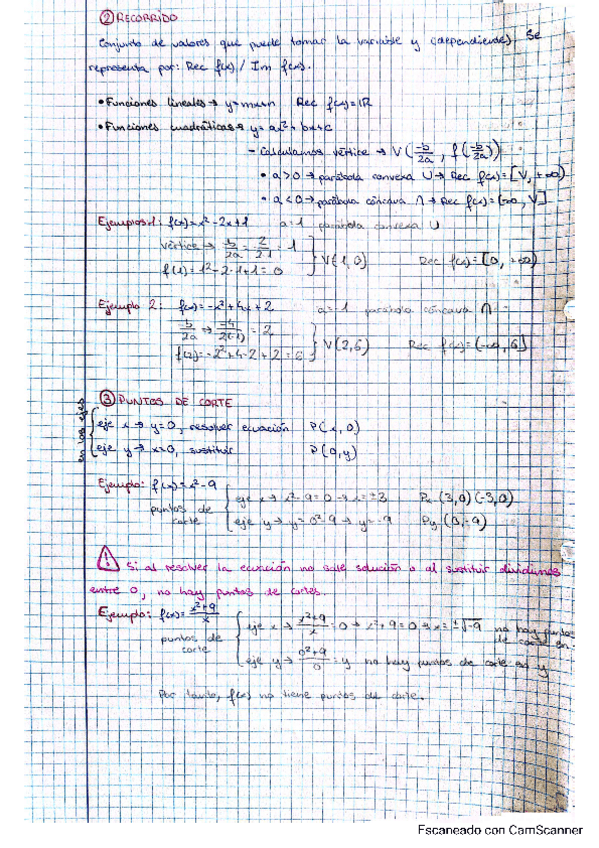 ② RECORRIDO
Conjunto de valores que puede tomar la variable y (dependiente). Se
representa por: Rec f(x) / Im f(x).
• Funciones lineales → y=mx+n Rec f(x)=ℝ
• Funciones cuadráticas → y=ax²+bx+c
- Calculamos vértice → V(-b/2a, f(-b/2a))
• a>0 → parábola convexa ∪ → Rec f(x)=[V, +∞)
• a<0 → parábola cóncava ∩ → Rec f(x)=(∞, V]
Ejemplos 1: f(x)=x²-2x+1 a=1 parábola convexa ∪
Vértice → -b/2a = 2/2·1 = 1
f(1)=1²-2·1+1=0 } V(1,0) Rec f(x)=[0, +∞)
Ejemplo 2: f(x)=-x²+4x+2 a=-1 parábola cóncava ∩
-b/2a → -4/2(-1) = 2
f(2)=-2²+4·2+2=6 } V(2,6) Rec f(x)=(-∞, 6]
③ PUNTOS DE CORTE
en los ejes
eje x → y=0, resolver ecuación P(x,0)
eje y → x=0, sustituir P(0,y)
Ejemplo: f(x)=x²-9
puntos de corte
eje x → x²-9=0 → x=±3 Px (3,0) (-3,0)
eje y → y=0²-9 → y=-9 Py (0,-9)
⚠ Si al resolver la ecuación no sale solución o al sustituir dividimos
entre 0, no hay puntos de cortes.
Ejemplo: f(x)=x²+9/x
puntos de corte
eje x → x²+9/x=0 → x²+9=0 → x=±√-9 no hay puntos
de corte en
eje y → 0²+9/0=y no hay puntos de corte en y
Por tanto, f(x) no tiene puntos de corte.
Escaneado con CamScanner